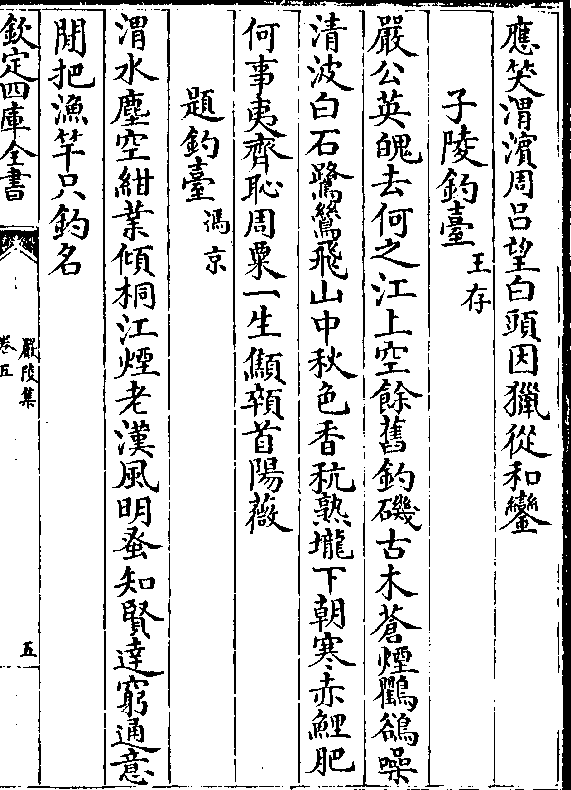 應笑渭濵周吕望白頭因獵從和鑾
子陵釣臺 王存
嚴公英魄去何之江上空餘舊釣磯古木蒼煙鸜鵒噪
清波白石鷺鷥飛山中秋色香秔熟壠下朝寒赤鯉肥
何事夷齊恥周粟一生顦顇首陽薇
題釣臺 馮京
渭水塵空紺業傾桐江煙老漢風明蚤知賢達窮通意
閒把漁竿只釣名
欽定四庫全書
嚴陵集
卷五
五